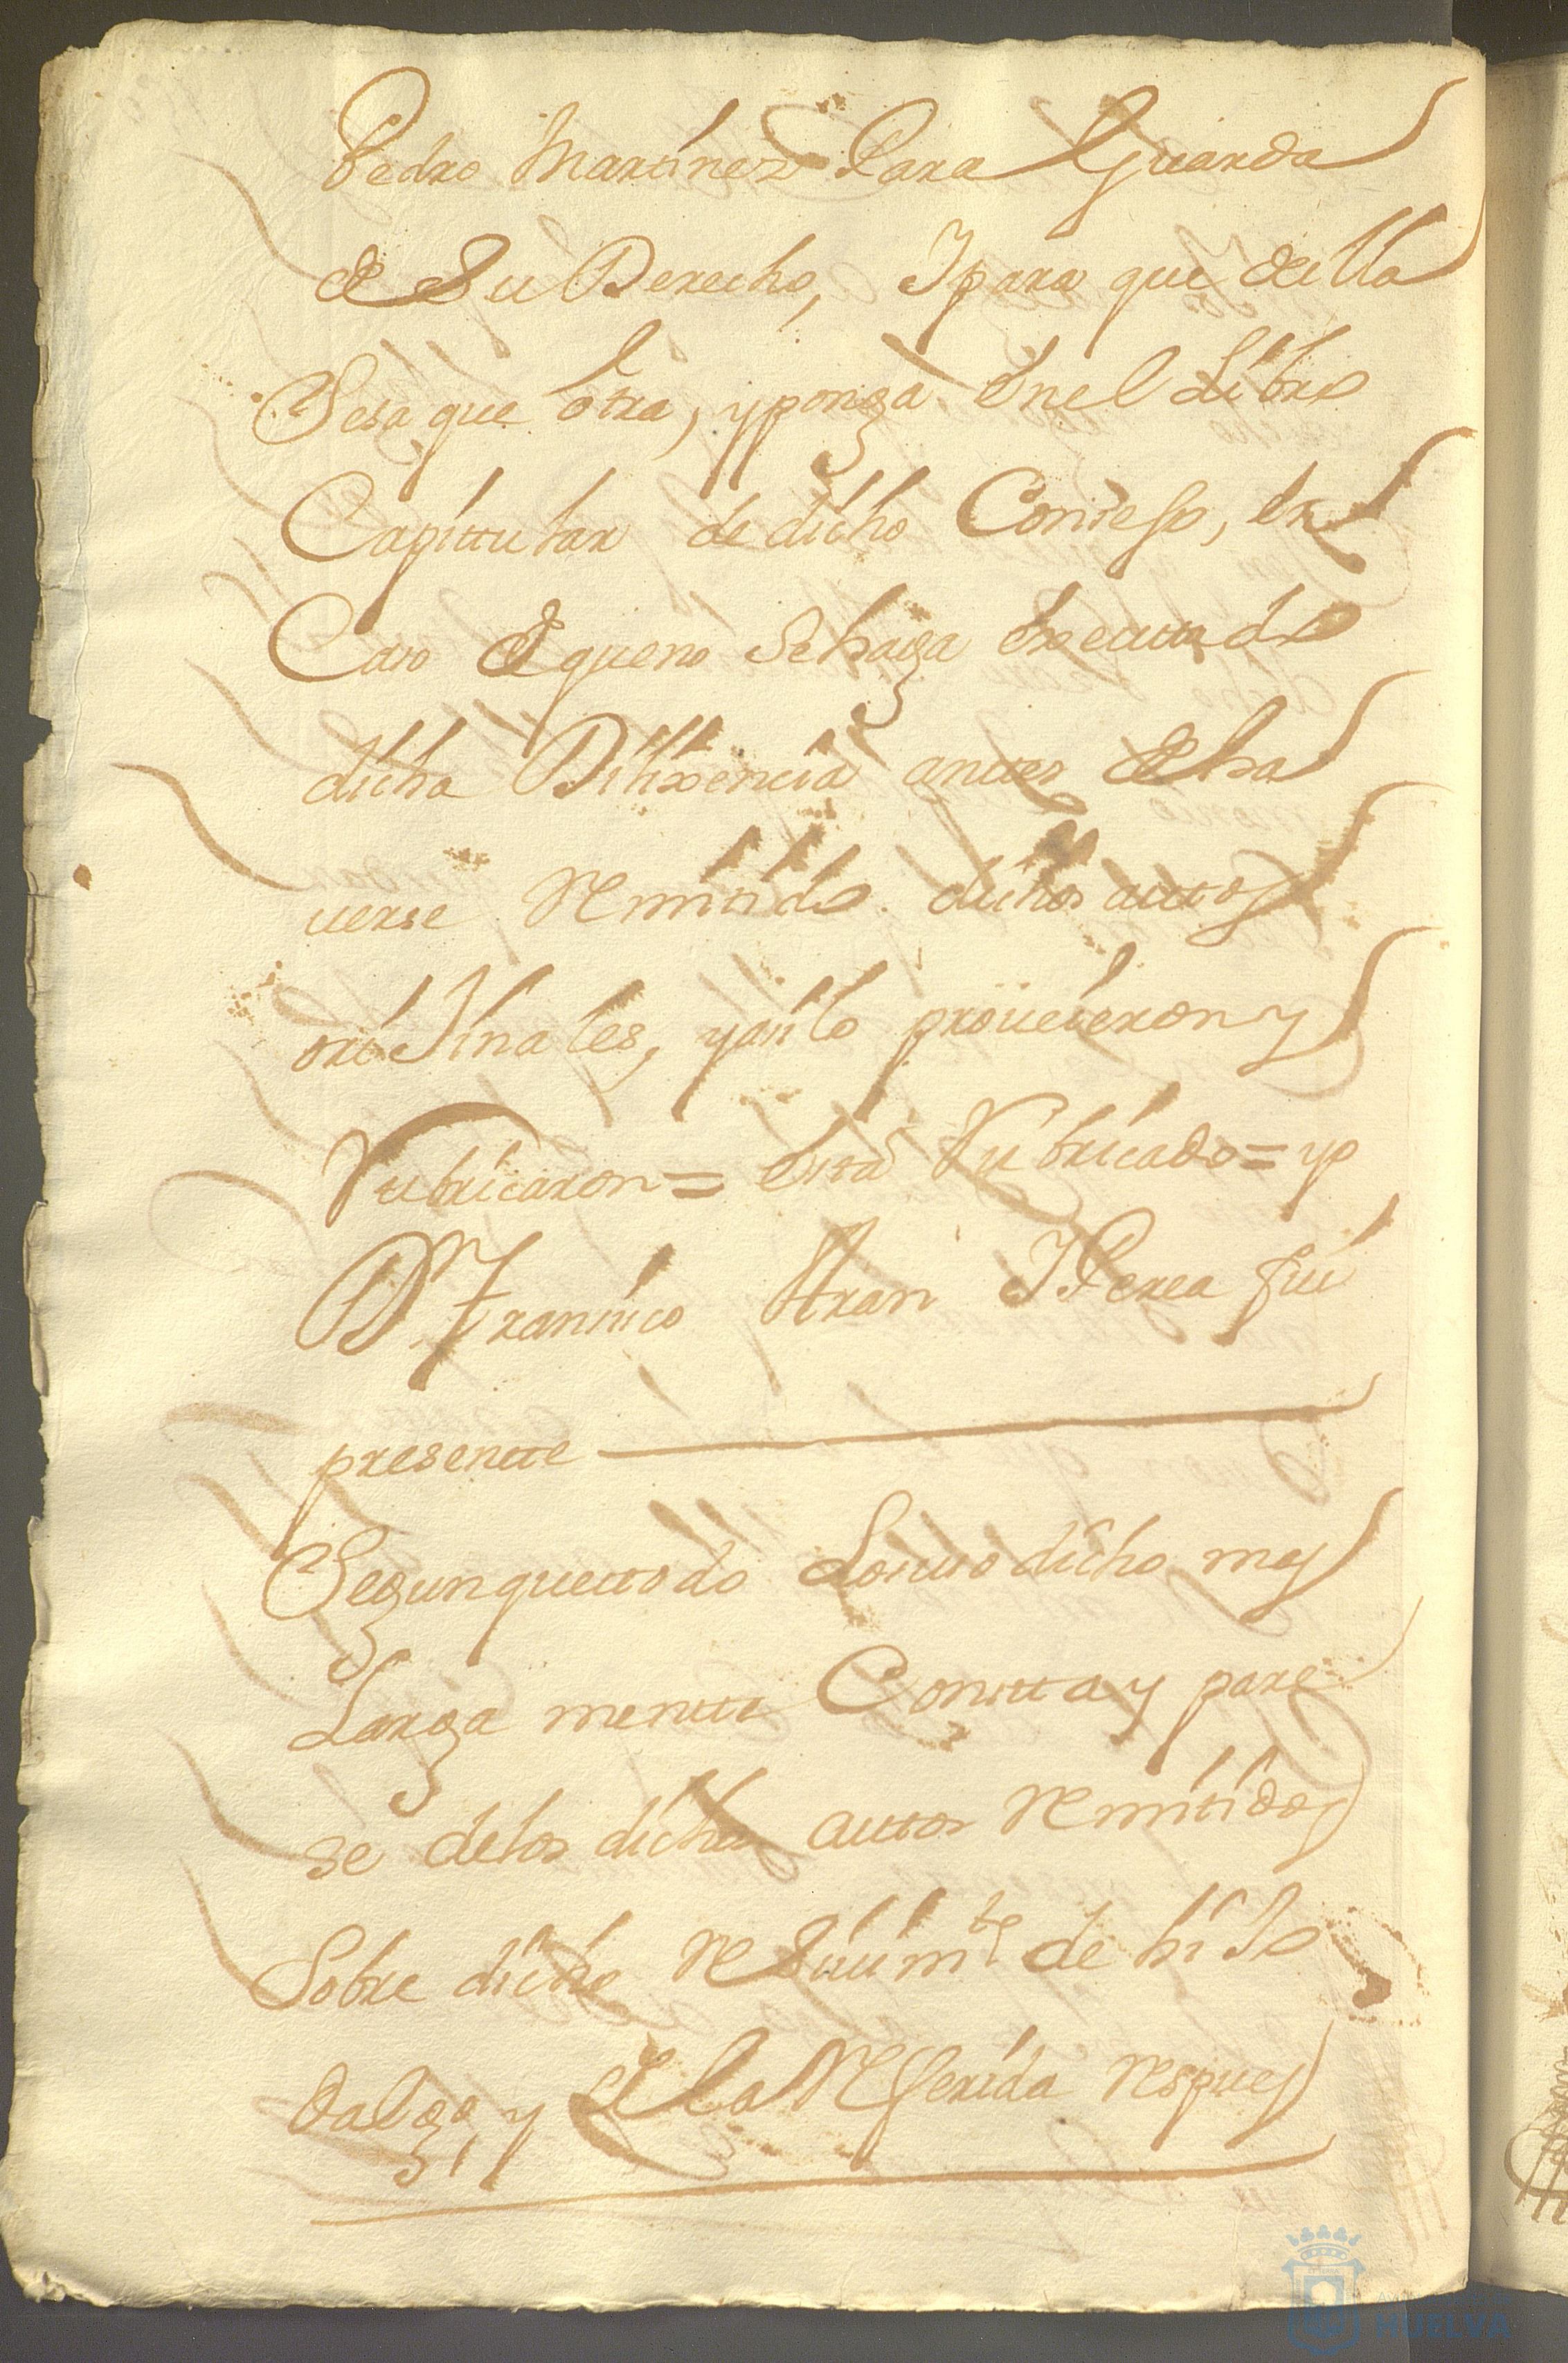 Pedro Martinez Para Guarda
de Su Derecho, Y para que de lla
Sesa que otra, y ponga En el Libro
Capittular de dicho Consejo, en
Caso de que no Se haga Executado
dicha Dilixencia anttes de ha
uerse Remitido dichos auttos
oriJinales, y asi lo proueieron y
Rubricaron = esta Rubricado = yo
Dn Francisco Aran Y Perea fui
presentte
Segun que ttodo Lo suso dicho mas
Larga mentte Constta y pare
se de los dichos auttos Remitidos
Sobre dicho ReSiuimto de hiJo
dalgo, y de la Referida respues
HUELVA